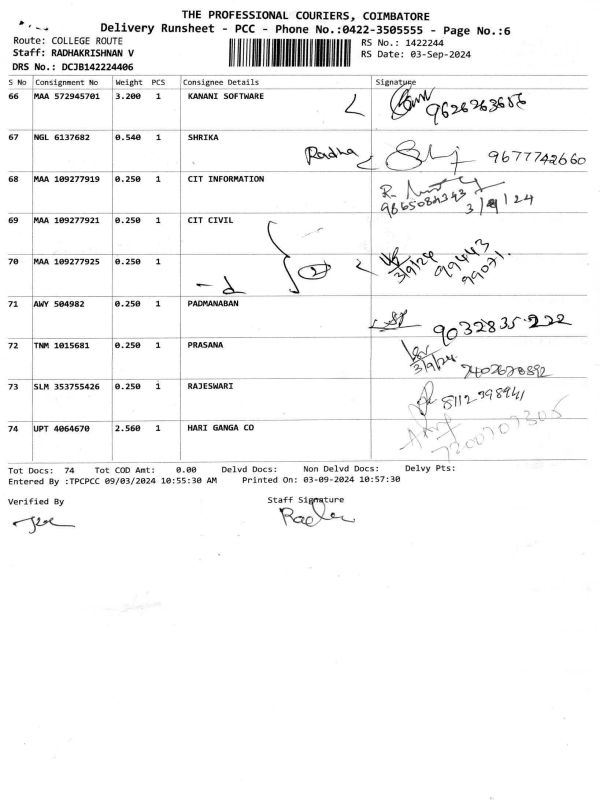 THE PROFESSIONAL COURIERS, COIMBATORE
Delivery Runsheet - PCC - Phone No.:0422-3505555 - Page No.:6
Route: COLLEGE ROUTE
RS No.: 1422244
Staff: RADHAKRISHNAN V
RS Date: 03-Sep-2024
DRS No.: DCJB142224406
S No Consignment No Weight PCS Consignee Details Signature
66 MAA 572945701 3.200 1 KANANI SOFTWARE 9626263656
67 NGL 6137682 0.540 1 SHRIKA Radha 9677742660
68 MAA 109277919 0.250 1 CIT INFORMATION 9865084343 3/9/24
69 MAA 109277921 0.250 1 CIT CIVIL
70 MAA 109277925 0.250 1 2 3/9/24 99443 99071.
71 AWY 504982 0.250 1 PADMANABAN 9032835222
72 TNM 1015681 0.250 1 PRASANA 3/9/24
73 SLM 353755426 0.250 1 RAJESWARI
74 UPT 4064670 2.560 1 HARI GANGA CO
Tot Docs: 74 Tot COD Amt: 0.00 Delvd Docs: Non Delvd Docs: Delvy Pts:
Entered By :TPCPCC 09/03/2024 10:55:30 AM Printed On: 03-09-2024 10:57:30
Verified By Staff Signature